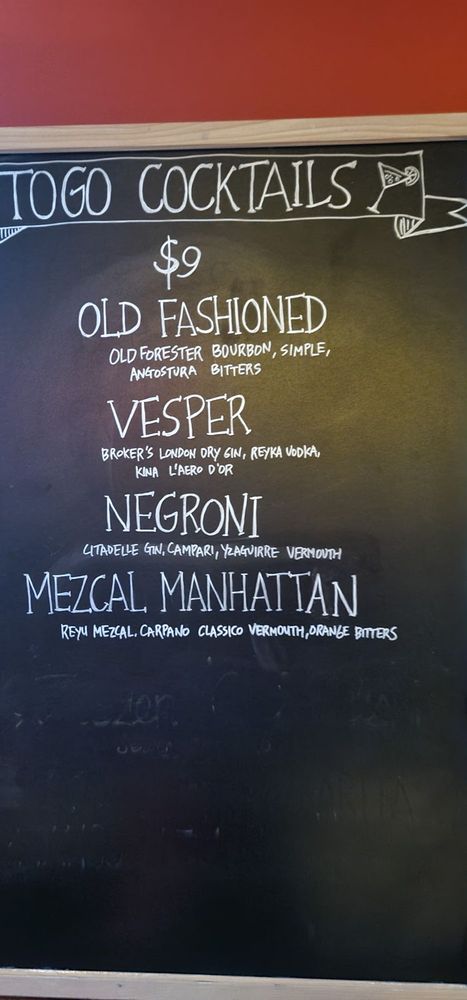 TOGO COCKTAILS
$9
OLD FASHIONED
OLD FORESTER BOURBON, SIMPLE,
ANGOSTURA BITTERS
VESPER
BROKER'S LONDON DRY GIN, REYKA VODKA,
KINA L'AERO D'OR
NEGRONI
CITADELLE GIN, CAMPARI, YZAGUIRRE VERMOUTH
MEZCAL MANHATTAN
REYU MEZCAL, CARPANO CLASSICO VERMOUTH, ORANGE BITTERS